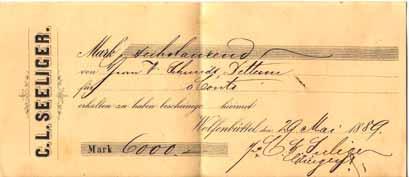 C. L. SEELIGER.
Mark sechstausend
von
für a Conto
erhalten zu haben bescheinige hiermit
Wolfenbüttel den 29 Mai 1889.
Mark 6000.—
C. L. Seeliger